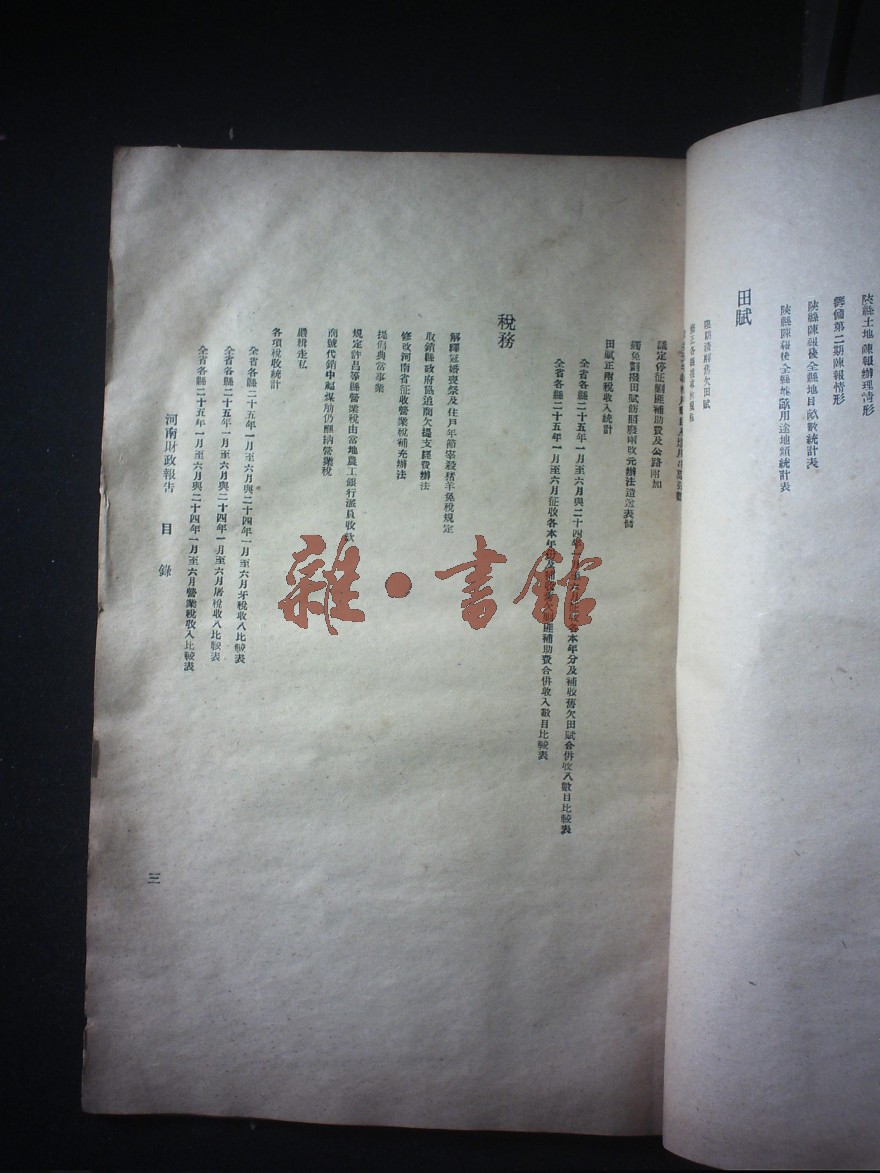 陝縣土地陳報辦理情形
籌備第二期陳報情形
陝縣陳報後全縣地目畝數統計表
陝縣陳報後全縣地畝用途地類統計表
田賦
限期清解舊欠田賦
議定停征剿匪補助費及公路附加
田賦正附稅收入統計
全省各縣二十五年一月至六月與二十四年一月至六月征收各本年分及補收舊欠田賦合併收入數目比較表
全省各縣二十五年一月至六月征收各本年份及補收舊欠剿匪補助費合併收入數目比較表
稅務
解釋冠婚喪祭及住戶年節宰殺猪羊免稅規定
取銷縣政府協追商欠提支經費辦法
修改河南省征收營業稅補充辦法
提倡典當事業
規定許昌等縣營業稅由當地農工銀行派員收款
商號代銷中福煤觔仍應納營業稅
嚴緝走私
各項稅收統計
全省各縣二十五年一月至六月與二十四年一月至六月牙稅收入比較表
全省各縣二十五年一月至六月與二十四年一月至六月屠稅收入比較表
全省各縣二十五年一月至六月與二十四年一月至六月營業稅收入比較表
河南財政報告 目錄
三
雜·書館